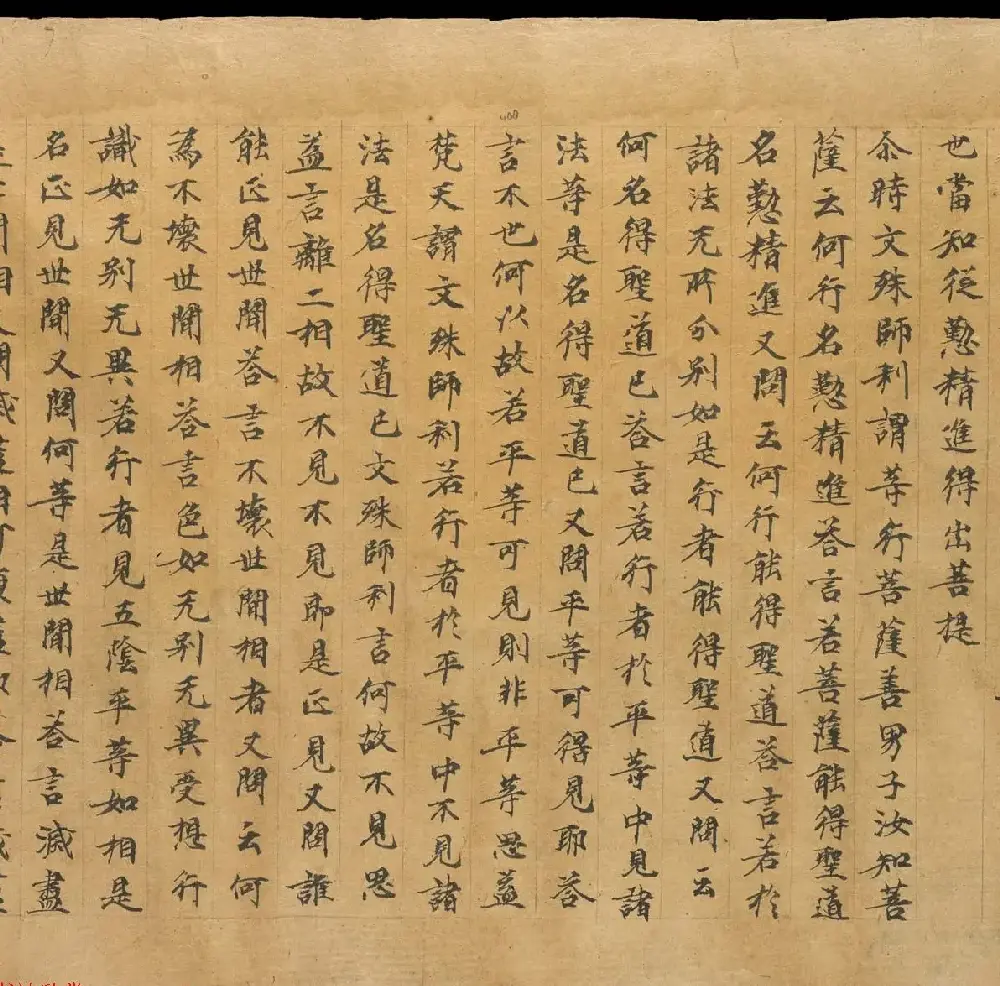 也當知從懃精進得出菩提
尒時文殊師利謂等行菩薩善男子汝知菩
薩云何行名懃精進荅言若菩薩能得聖道
名懃精進又問云何行能得聖道荅言若於
諸法无所分别如是行者能得聖道又問云
何名得聖道已荅言若行者於平等中見諸
法等是名得聖道已又問平等可得見耶荅
言不也何以故若平等可見則非平等思益
梵天謂文殊師利若行者於平等中不見諸
法是名得聖道已文殊師利言何故不見思
益言離二相故不見不見即是正見又問誰
能正見世間荅言不壞世間相者又問云何
為不壞世間相荅言色如无别无異受想行
識如无别无異若行者見五陰平等如相是
名正見世間又問何等是世間相荅言滅盡